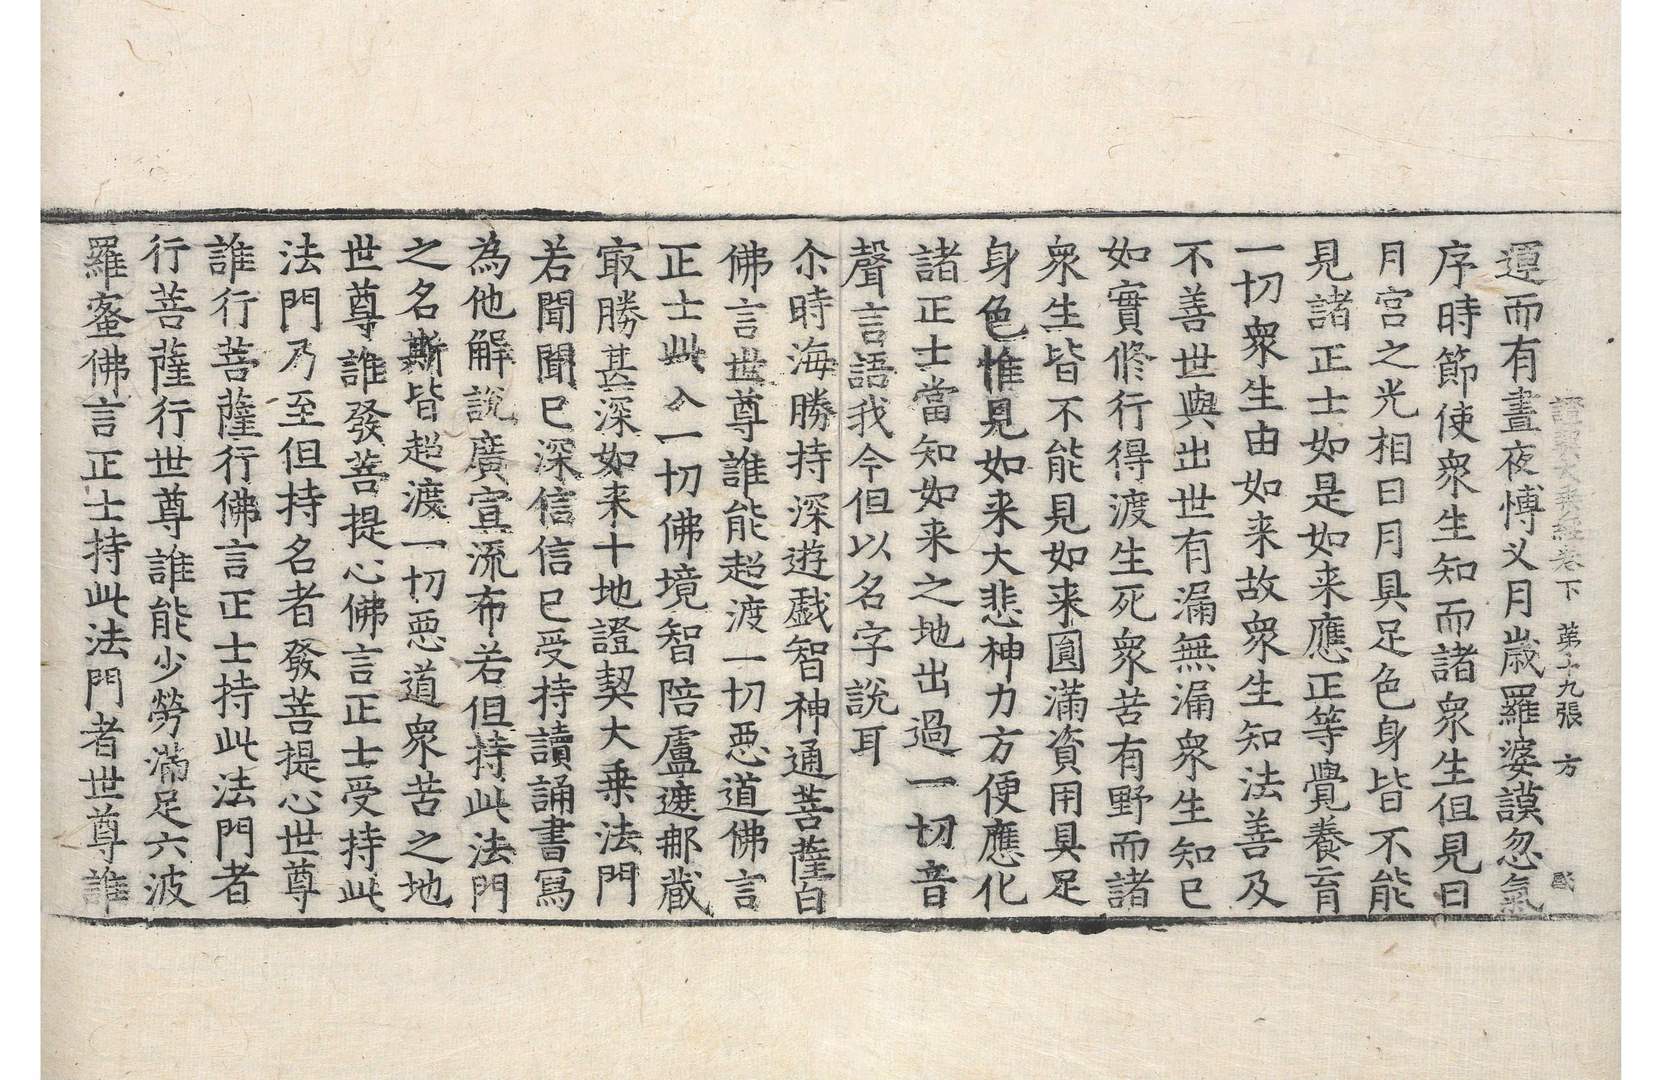 證契大乗經卷下　第十九張　方
運而有晝夜愽义月歳羅婆謨忽氣
序時節使衆生知而諸衆生但見日
月宮之光相日月具足色身皆不能
見諸正士如是如来應正等覺養育
一切衆生由如来故衆生知法善及
不善世與出世有漏無漏衆生知已
如實修行得渡生死衆苦有野而諸
衆生皆不能見如来圓滿資用具足
身色惟見如来大悲神力方便應化
諸正士當知如来之地出過一切音
聲言語我今但以名字說耳
尒時海勝持深遊戲智神通菩薩白
佛言世尊誰能超渡一切惡道佛言
正士此入一切佛境智陪盧遮那蔵
㝡勝甚深如来十地證契大乗法門
若聞聞已深信信已受持讀誦書冩
為他解說廣宣流布若但持此法門
之名斯皆超渡一切惡道衆苦之地
世尊誰發菩提心佛言正士受持此
法門乃至但持名者發菩提心世尊
誰行菩薩行佛言正士持此法門者
行菩薩行世尊誰能少勞滿足六波
羅蜜佛言正士持此法門者世尊誰